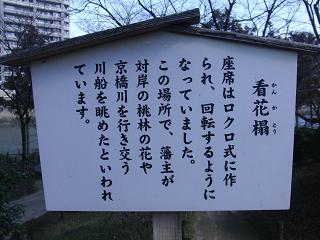 看花榻
かんかとう
座席はロクロ式に作
られ、回転するように
なっていました。
この場所で、藩主が
対岸の桃林の花や
京橋川を行き交う
川船を眺めたといわれ
ています。